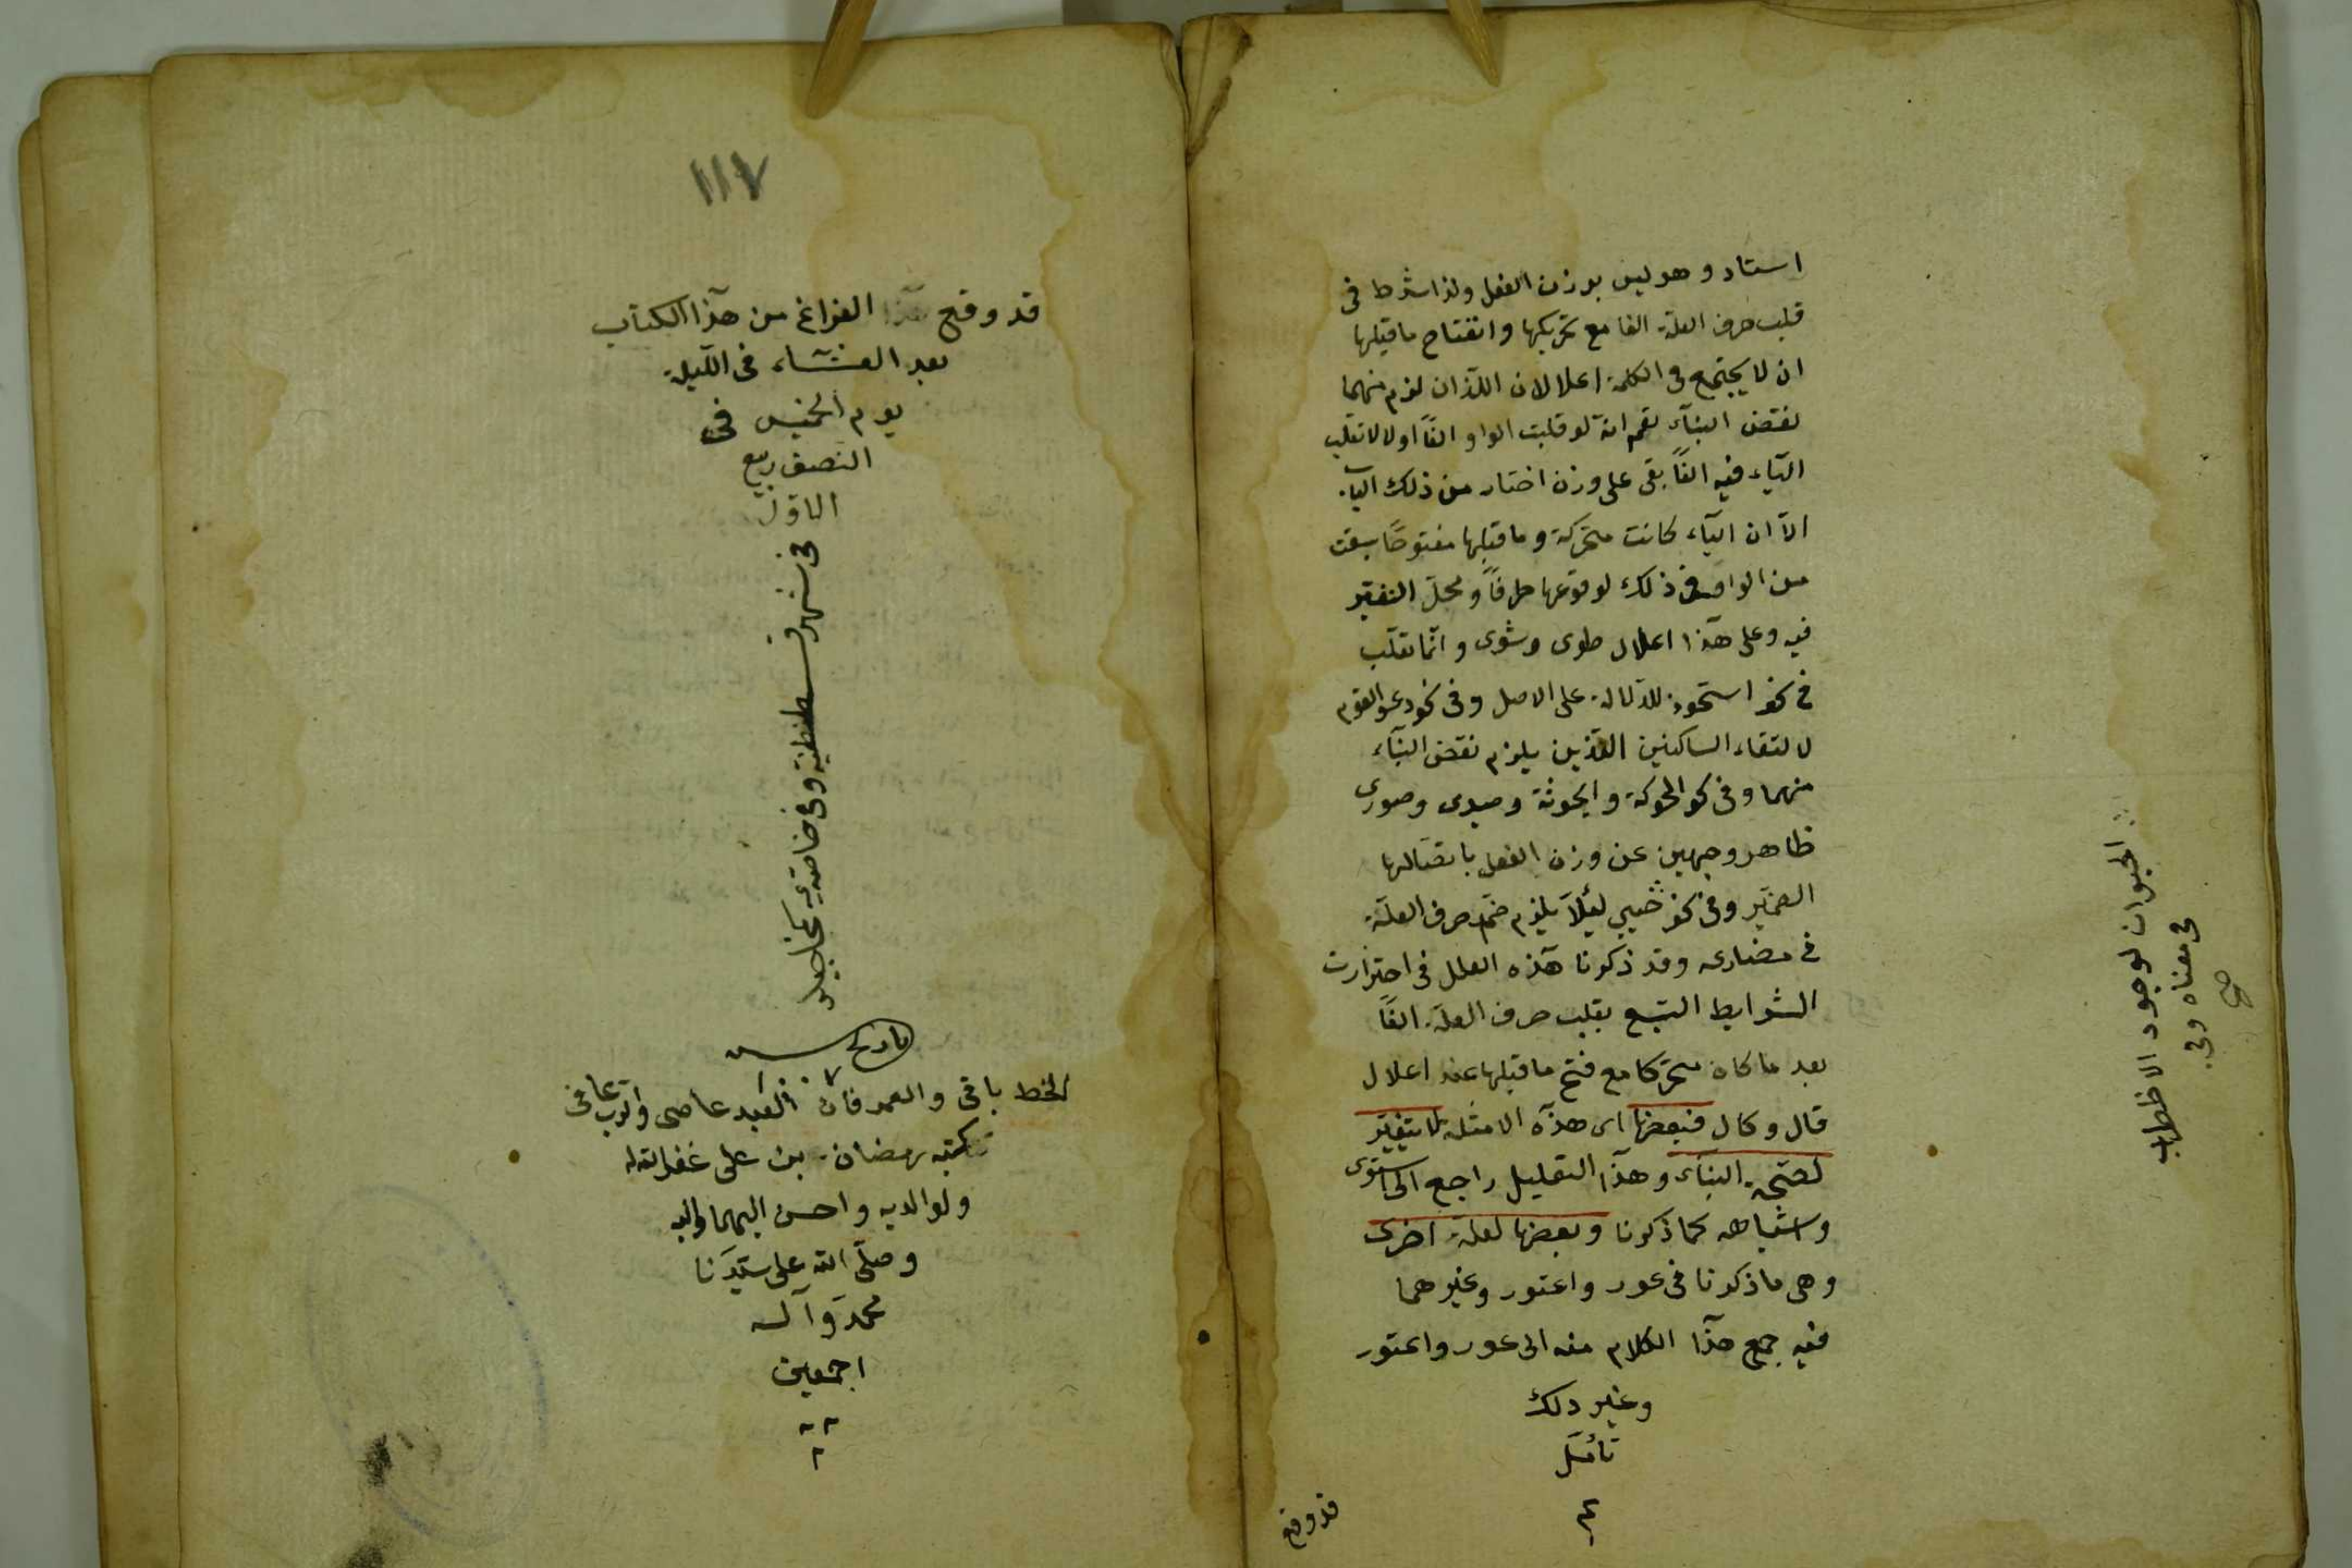 استاد وهو ليس بوزن الفعل ولذا شرط فى
قلب حرف العلة الفا مع تحريكها وانفتاح ما قبلها
ان لا يجتمع فى الكلمة اعلالان اللذان لزم منهما
نقض البنآء نعم انه لو قلبت الواو الفاً اولا لا تقلب
اليآء فيه الفاً بقى على وزن اختار من ذلك الباب
الاّ ان اليآء كانت متحركة وما قبلها مفتوحًا سبقت
من الواو فى ذلك لوقوعها طرفاً ومحلّ التغيّر
فيه وعلى هذا اعلال طوى وشوى وانّما تقلب
فى نحو استحوذ للدّلالة على الاصل وفى نحو دعوا القوم
لالتقاء الساكنين اللذين يلزم نقض البنآء
منهما وفى نحو الحوكة والخونة وحيدى وصورى
ظاهر وجهين عن وزن الفعل باتصالها
الضمير وفى نحو حيى لئلّا يلزم ضمّ حرف العلّة
فى مضارعه وقد ذكرنا هذه العلل فى احترازت
الشرايط السّبع بقلب حرف العلّة الفاً
بعد ما كان متحرّكا مع فتح ما قبلها عند اعلال
قال وكال فبعضها اى هذه الامثلة لا يتغيّر
لصحّة البنآء وهذا التعليل راجع الى استوى
واشباهه كما ذكرنا وبعضها لعلّة اخرى
وهى ما ذكرنا فى عور واعتور وغيرهما
فيه جمع هذا الكلام منه الى عور واعتور
وغير ذلك
تأمّل
م
قد وقع
الحيوان لوجود الاضطراب
فى معناه وفى
صح
١١٧
قد وقع هذا الفراغ من هذا الكتاب
بعد العشآء فى الليلة
يوم الخميس فى
النصف ربيع
الاوّل
فى شهر قسطنطنية وفى
تاريخ سنه
الخط باقى والعمر فان العبد عاصى والرب عافى
كتبه رمضان بن على غفر الله له
ولوالديه واحسن اليهما واليه
وصلّى الله على سيّدنا
محمّد وآله
اجمعين